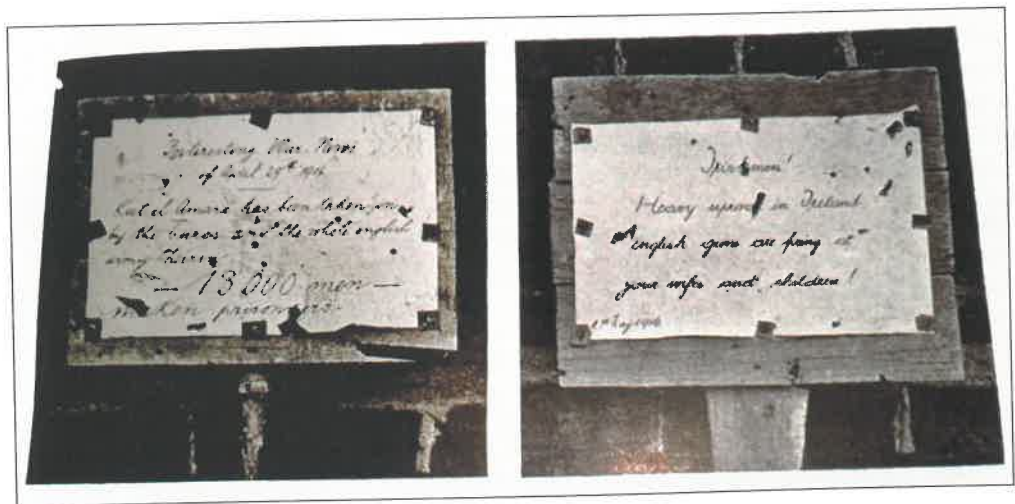 Interesting War News
of April 29th 1916
Kut el Amara has been taken in
by the and the whole english
army therein
— 13000 men —
maken prisoners.
Irishmen!
Heavy uproar in Ireland
English guns are firing at
your wifes and children!
1st May 1916